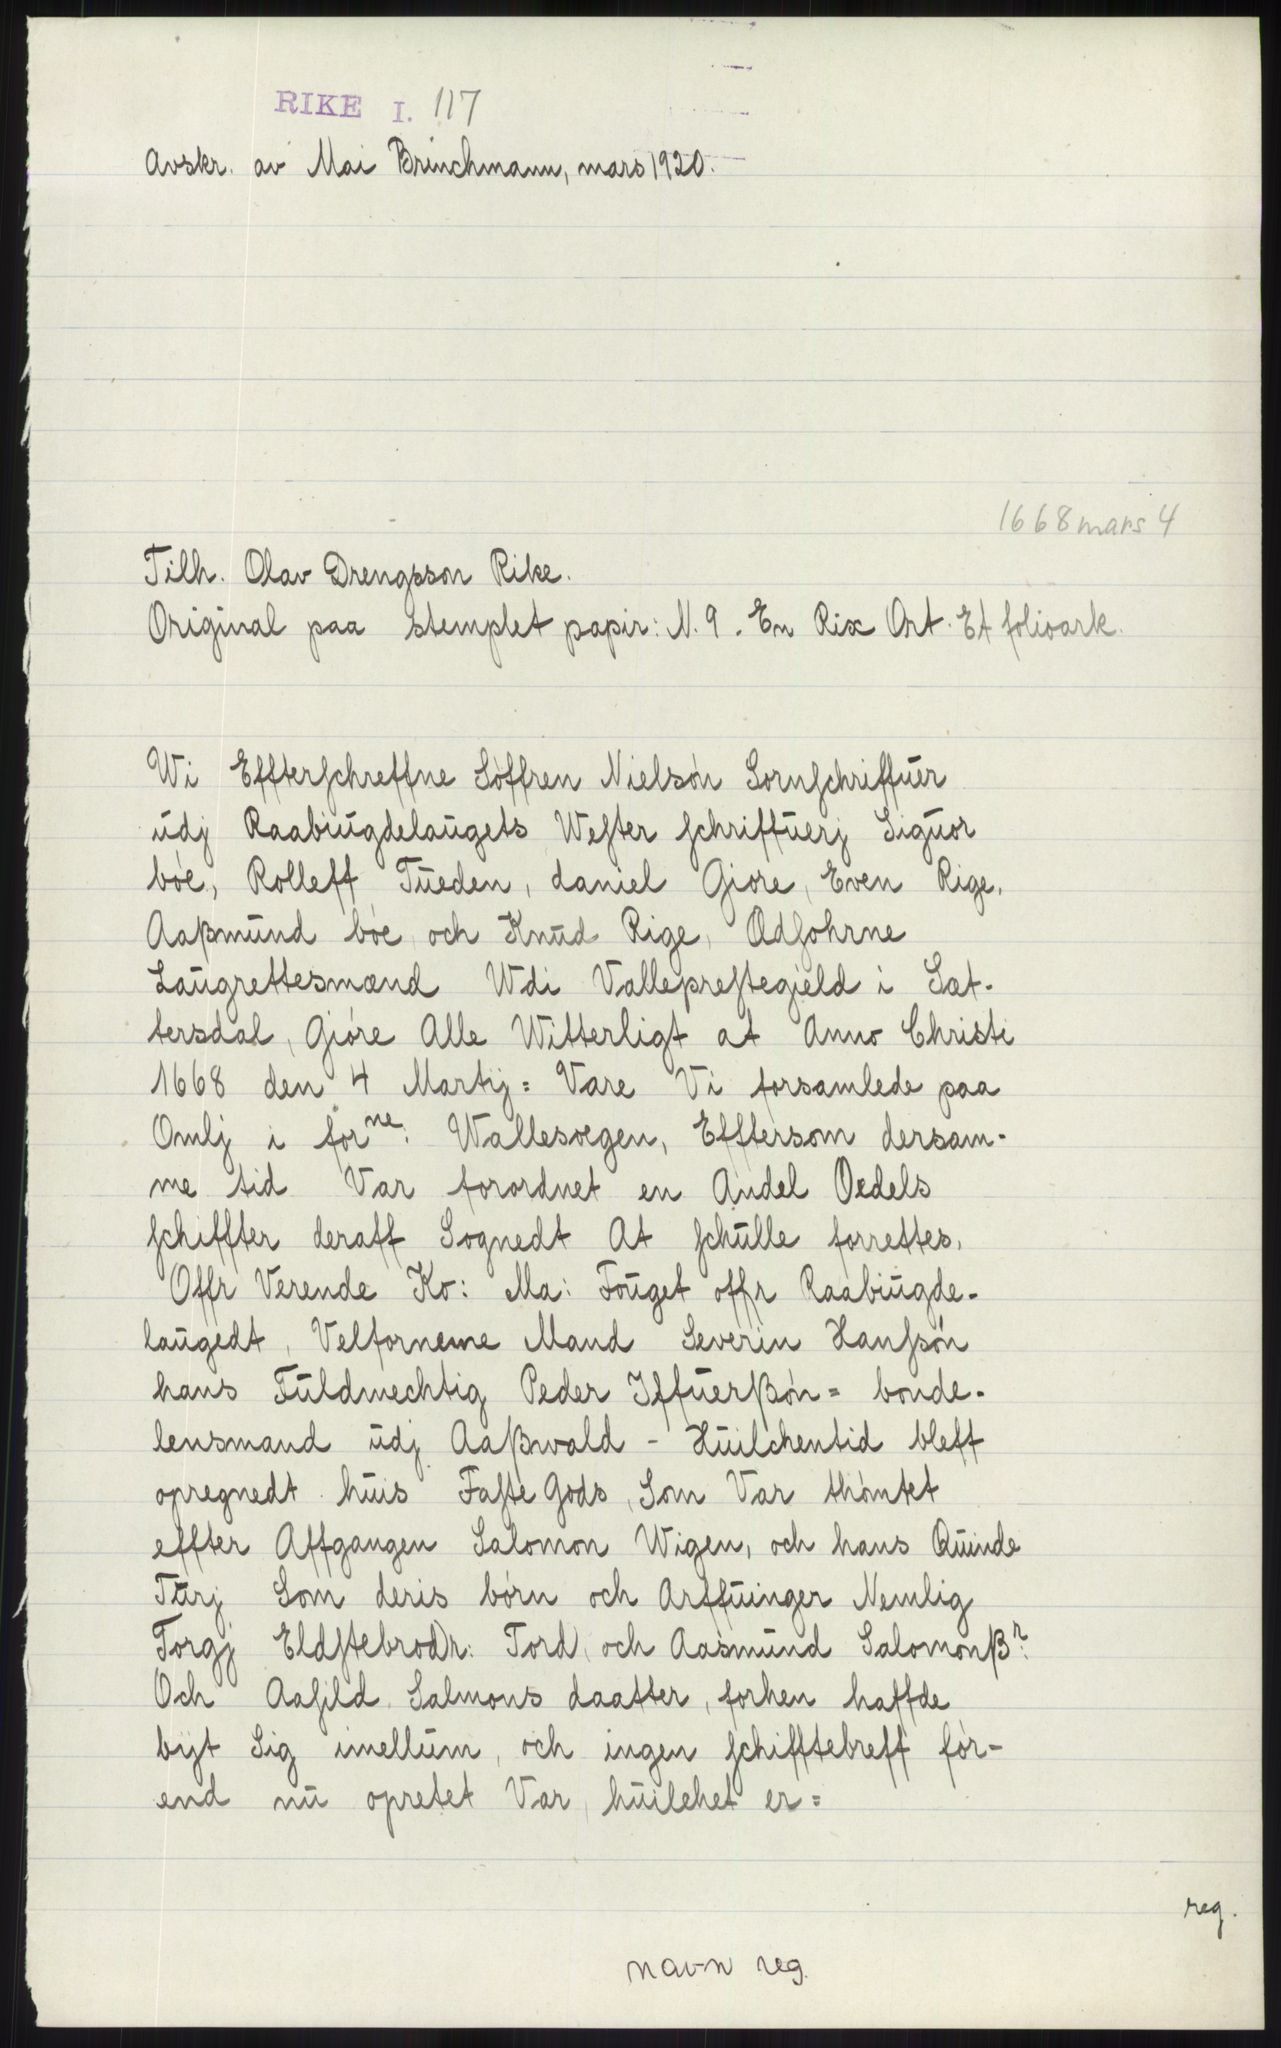 RIKE I. 117
Avskr. av Mai Brinchmann, mars 1920.
1668 mars 4
Tilh. Olav Drengsson Rike.
Original paa stemplet papir: N. 9. En Rix Ort. Et folioark.
Wi Effterschreffne Söffren Nielsön Sornschriffuer
udj Raabiugdelaugets Wester schriffuerj Siguor
böe, Rolleff Tueden, daniel Giore, Even Rige,
Aaßmund böe, och Knud Rige, Odsohrne
Laugrettesmænd Wdi Valleprestegield i Sæt-
tersdal, Giöre Alle Witterligt at Anno Christi
1668 den 4 Martij = Vare Vi forsamlede paa
Omlj i forne: Wallesoegen, Efftersom dersam-
me tid Var forordnet en Andel Oedels
schiffter deraff Sognedt At schulle forrettes,
Offr Verende Ko: Ma: Fouget offr Raabiugde-
laugedt, Velforneme Mand Severin Hanssön
hans Fuldmechtig Peder Iffuerßön = bonde-
lensmand udj Aaßwald - Huilchentid bleff
opregnedt huis Faste Gods, Som Var thömtet
effter Affgangen Salomon Wigen, och hans Quinde
Turj Som deris börn och Arffuinger Nemlig
Torgj Eldstebrodr: Tord, och Aasmund Salomonßn:
Och Aasild Salmons daatter, forhen haffde
bijt Sig imellum, och ingen schifftebreff för-
end nu opretet Var, huilchet er =
reg.
navn reg.